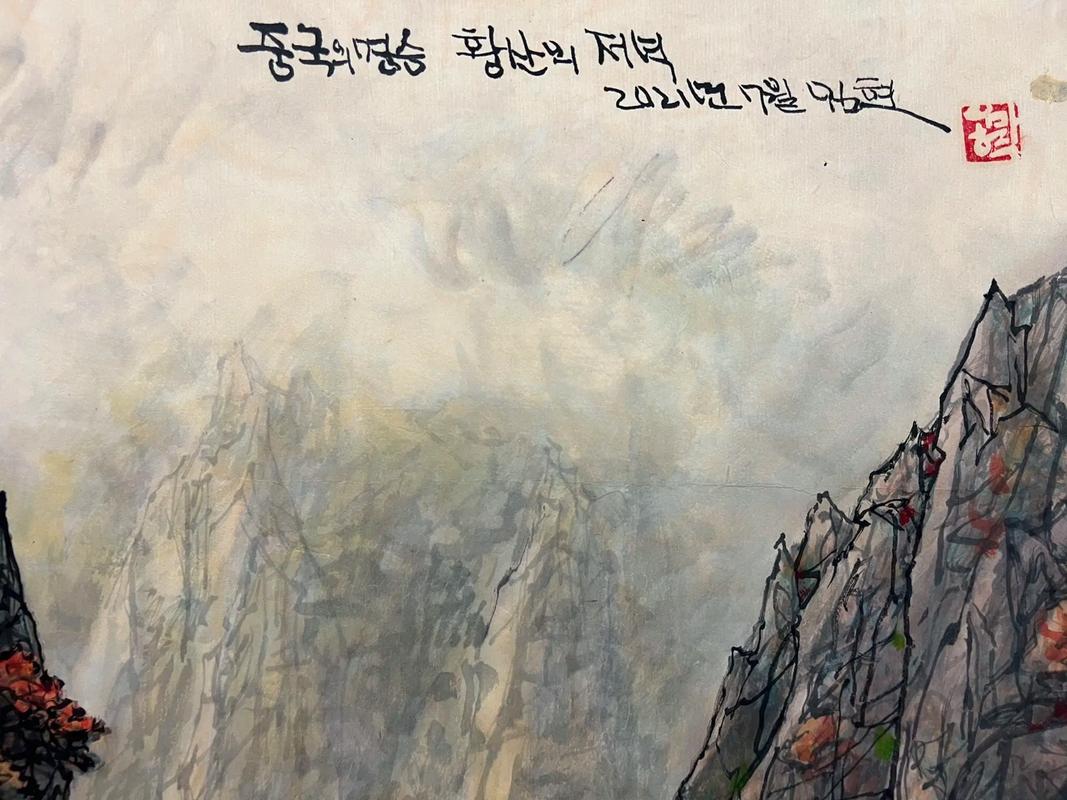 중국의경승 황산의 저녁
2021년 7월